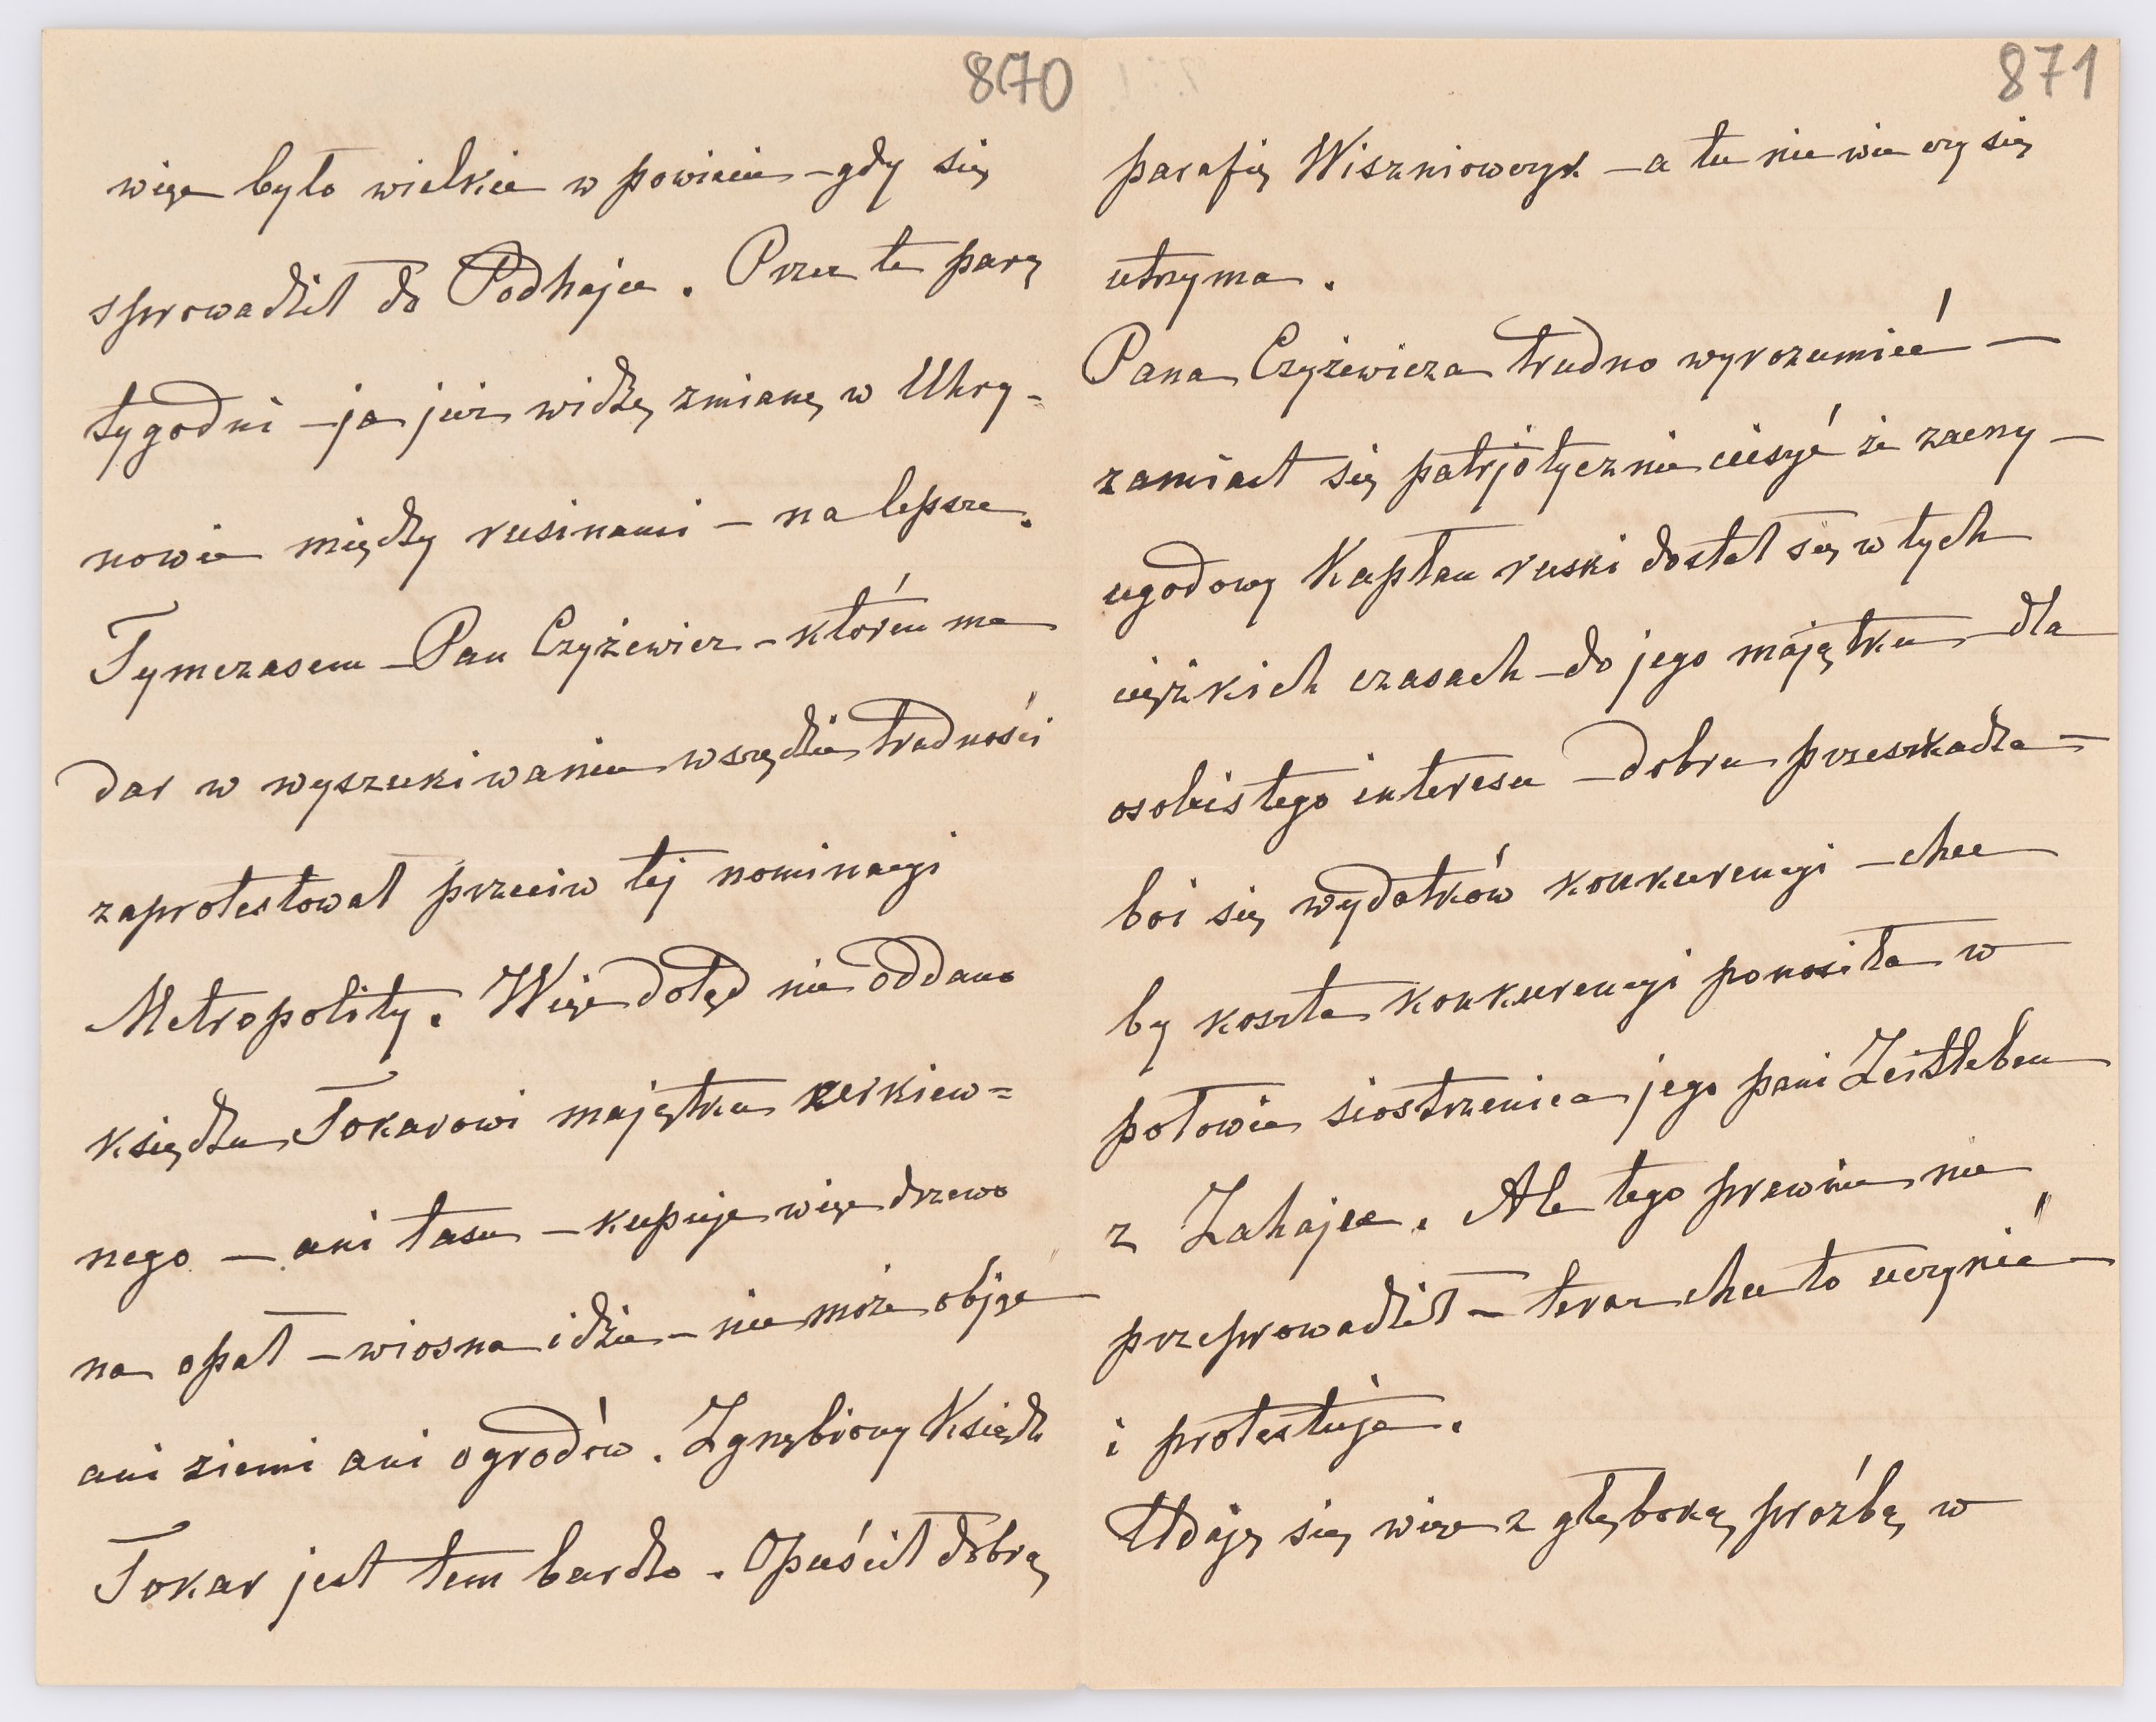 870
więc było wielkie w powiecie – gdy się
sprowadził do Podhajec. Przez te parę
tygodni – ja już widzę zmianę w Uhry-
nowie między rusinami – na lepsze.
Tymczasem – Pan Czyżewicz – któren ma
dar w wyszukiwaniu wszędzie trudności
zaprotestował przeciw tej nominacyi
Metropolity. Więc dotąd nie oddano
księdzu Tokarowi majątku cerkiew=
nego – ani lasu – kupuje więc drzewo
na opał – wiosna idzie – nie może objąć
ani ziemi ani ogrodów. Zgnębiony Ksiądz
Tokar jest tem bardzo. Opuścił dobrą
871
parafię Wiszniowczyk – a tu nie wie czy się
utrzyma.
Pana Czyżewicza trudno wyrozumieć –
zamiast się patrjotycznie cieszyć że zacny –
ugodowy Kapłan ruski dostał się w tych
ciężkich czasach – do jego majątku – dla
osobistego interesu – dobru przeszkadza –
boi się wydatków konkurencyi – chce
by koszta konkurencyi ponosiła w
połowie siostrzenica jego pani Zeitleben
z Zahajec. Ale tego prawnie nie
przeprowadził – teraz chce to uczynić –
i protestuje.
Udaję się więc z głęboką proźbą w